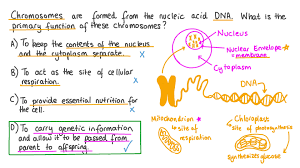 Chromosomes are formed from the nucleic acid DNA. What is the
primary function of these chromosomes?
A) To keep the contents of the nucleus
and the cytoplasm separate. X
B) To act as the site of cellular
respiration. X
C) To provide essential nutrition for
the cell. X
D) To carry genetic information
and allow it to be passed from
parent to offspring. ✓
Nucleus
Nuclear Envelope
membrane
Cytoplasm
DNA
Mitochondrion
site of
respiration
Chloroplast
site of photosynthesis
Synthesizes glucose